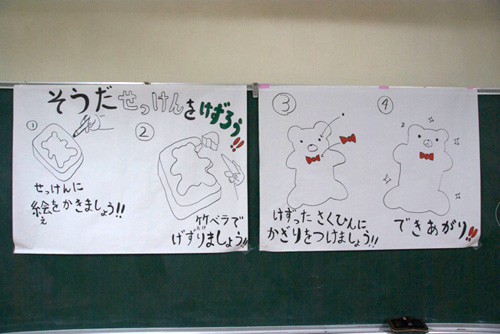 そうだせっけんをけずろう!!
①
せっけんに
絵をかきましょう!!
え
②
竹ベラで
けずりましょう!!
③
けずったさくひんに
かざりをつけましょう!!
④
できあがり!!